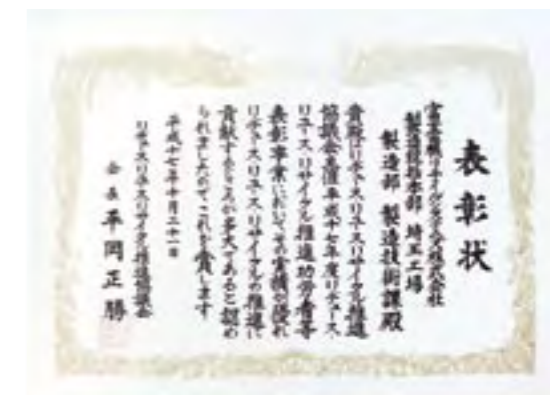 表彰状
富士電機リテイルシステムズ株式会社
製造統括本部 埼玉工場
製造部 製造技術課殿
貴殿はリデュースリユースリサイクル推進
協議会主催平成十七年度リデュース
リユースリサイクル推進功労者等
表彰事業においてその実績が優れ
リデュースリユースリサイクルの推進に
貢献するところが多大であると認め
られましたのでこれを賞します
平成十七年十月二十一日
リデュースリユースリサイクル推進協議会
会長 平岡正勝